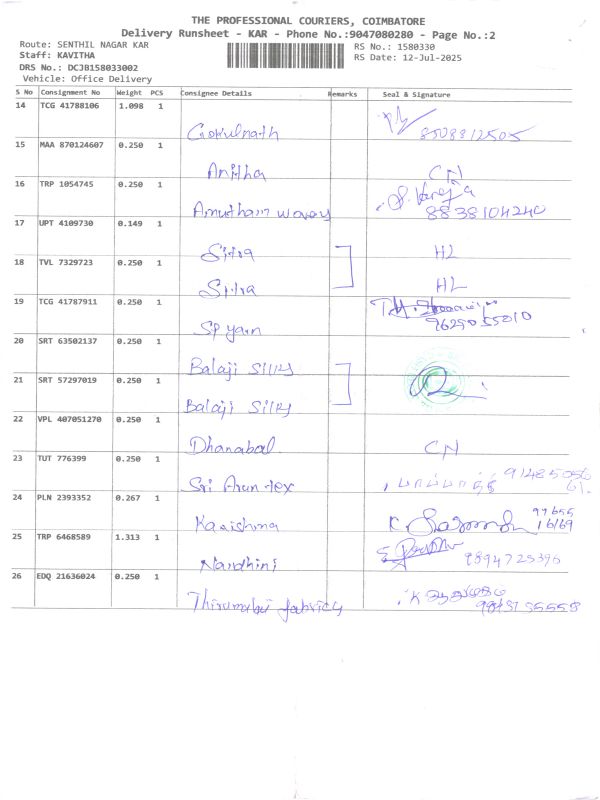 THE PROFESSIONAL COURIERS, COIMBATORE
Delivery Runsheet - KAR - Phone No.:9047080280 - Page No.:2
Route: SENTHIL NAGAR KAR RS No.: 1580330
Staff: KAVITHA RS Date: 12-Jul-2025
DRS No.: DCJB158033002
Vehicle: Office Delivery
S No Consignment No Weight PCS Consignee Details Remarks Seal & Signature
14 TCG 41788106 1.098 1
Gokulnath 8508812505
15 MAA 870124607 0.250 1
Anitha CN
16 TRP 1054745 0.250 1
Amutham 8838104240
17 UPT 4109730 0.149 1
Sitra HL
18 TVL 7329723 0.250 1
Sitra HL
19 TCG 41787911 0.250 1
SP yarn 9629055010
20 SRT 63502137 0.250 1
Balaji Silks
21 SRT 57297019 0.250 1
Balaji Silks
22 VPL 407051270 0.250 1
Dhanabal CN
23 TUT 776399 0.250 1
Sri Arun tex
24 PLN 2393352 0.267 1
Karishma
25 TRP 6468589 1.313 1
Nandhini 9894723390
26 EDQ 21636024 0.250 1
fabrics